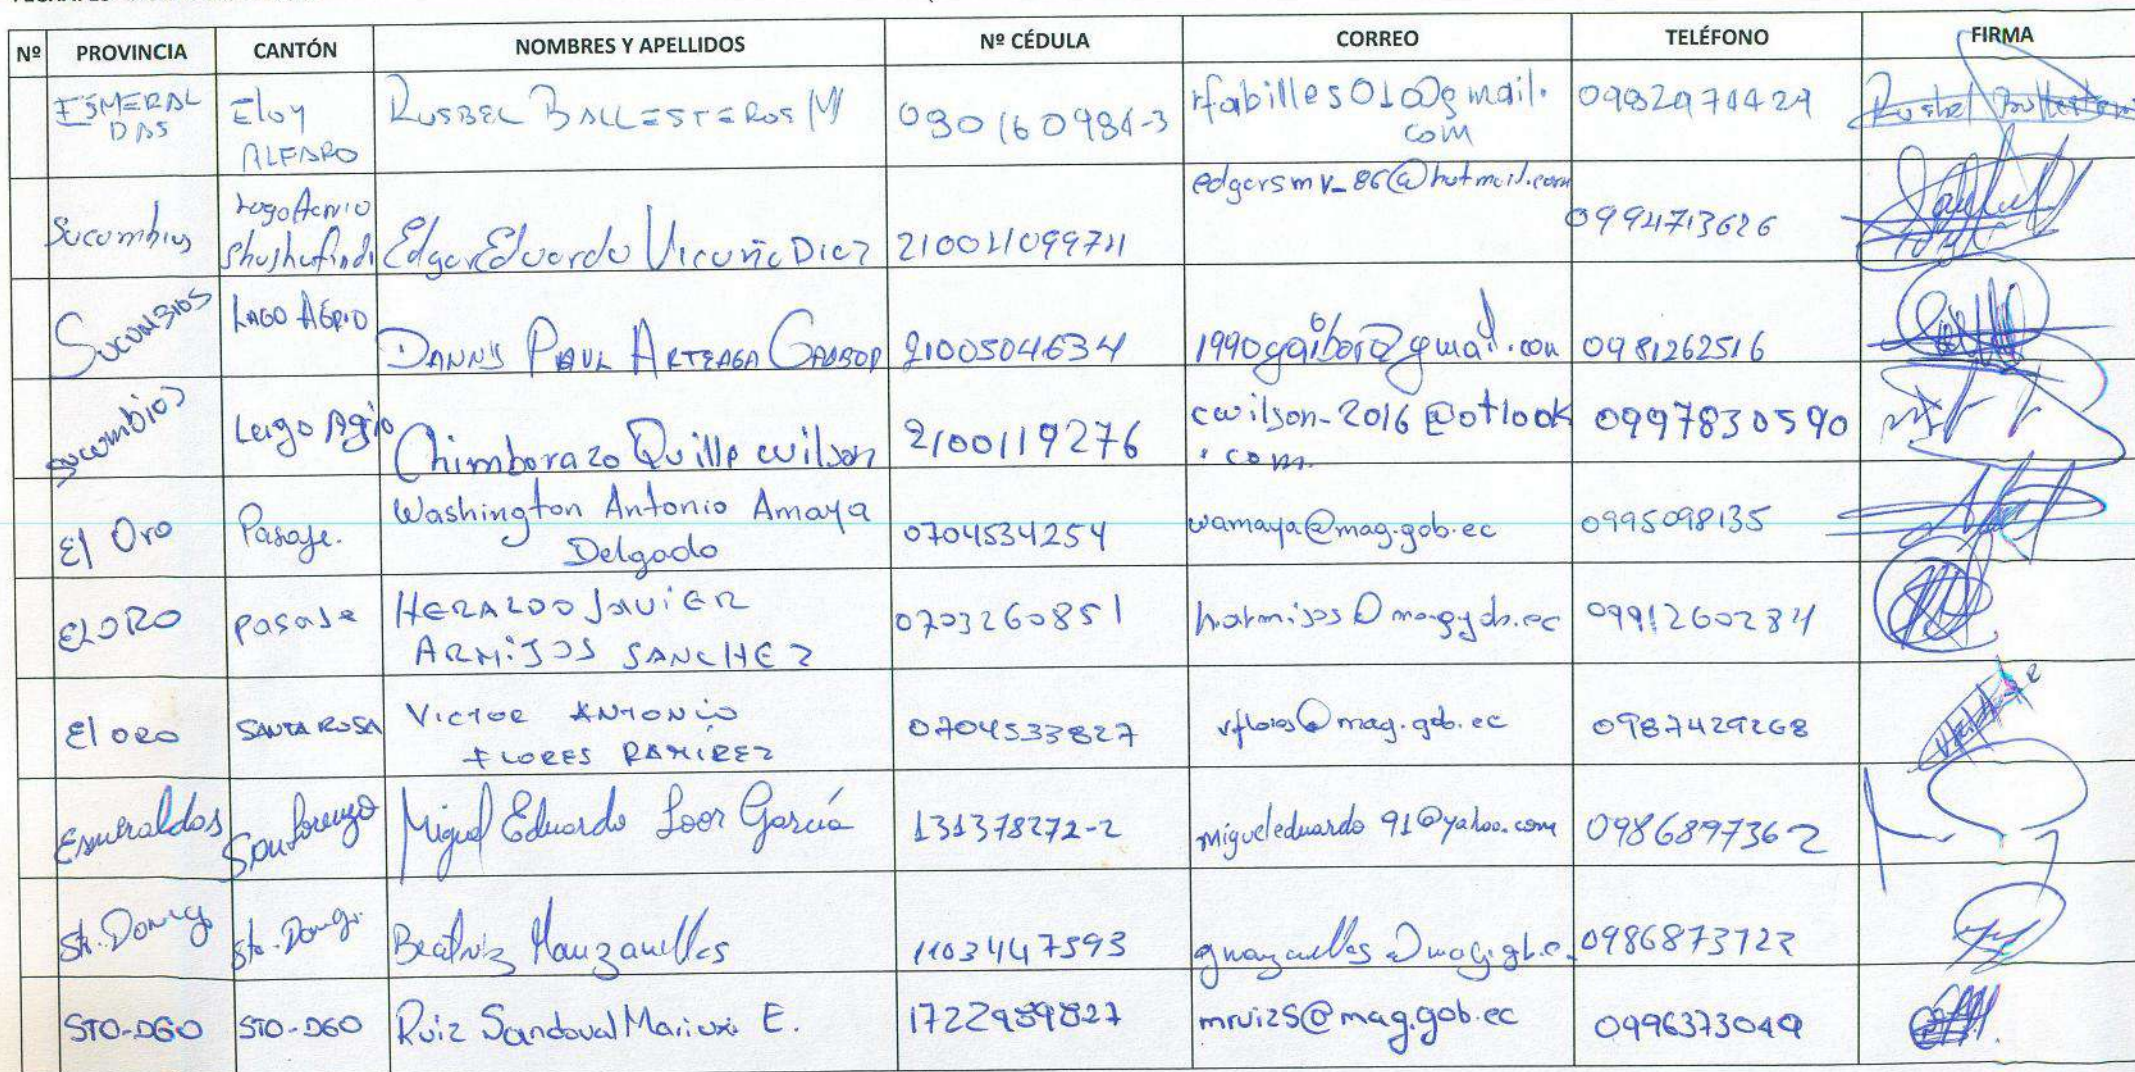 Nº PROVINCIA CANTÓN NOMBRES Y APELLIDOS Nº CÉDULA CORREO TELÉFONO FIRMA
ESMERAL DAS Eloy ALFARO RUSBEL BALLESTEROS M 080160984-3 rfabilles010@gmail.com 0982974429
Sucumbios Lago Agrio Shushufindi Edgar Eduardo Vicuña Diaz edgarsmv_86@hotmail.com 0994713626
SUCUMBIOS LAGO AGRIO DANNY PAUL ARTEAGA GAIBOR 2100504634 1990gaibor@gmail.com 0981262516
Sucumbios Lago Agrio Chimborazo Quille wilson 2100119276 cwilson-2016@otlook.com 0997830590
El Oro Pasaje. Washington Antonio Amaya Delgado 0704534254 wamaya@mag.gob.ec 0995098135
EL ORO Pasaje HERALDO JAVIER ARMIJOS SANCHEZ 0703260851 harmijos@mag.gob.ec 0991260284
El oro SANTA ROSA VICTOR ANTONIO FLORES RAMIREZ 0704533827 vflores@mag.gob.ec 0987429268
Esmeraldas San Lorenzo Miguel Eduardo Loor García 131378272-2 migueleduardo91@yahoo.com 0986897362
Sto. Domingo Sto. Domgo. Beatriz Manzanillas 1103447593 0986873722
STO-DGO STO-DGO Ruiz Sandoval Mariuxi E. mruizS@mag.gob.ec 0996373049